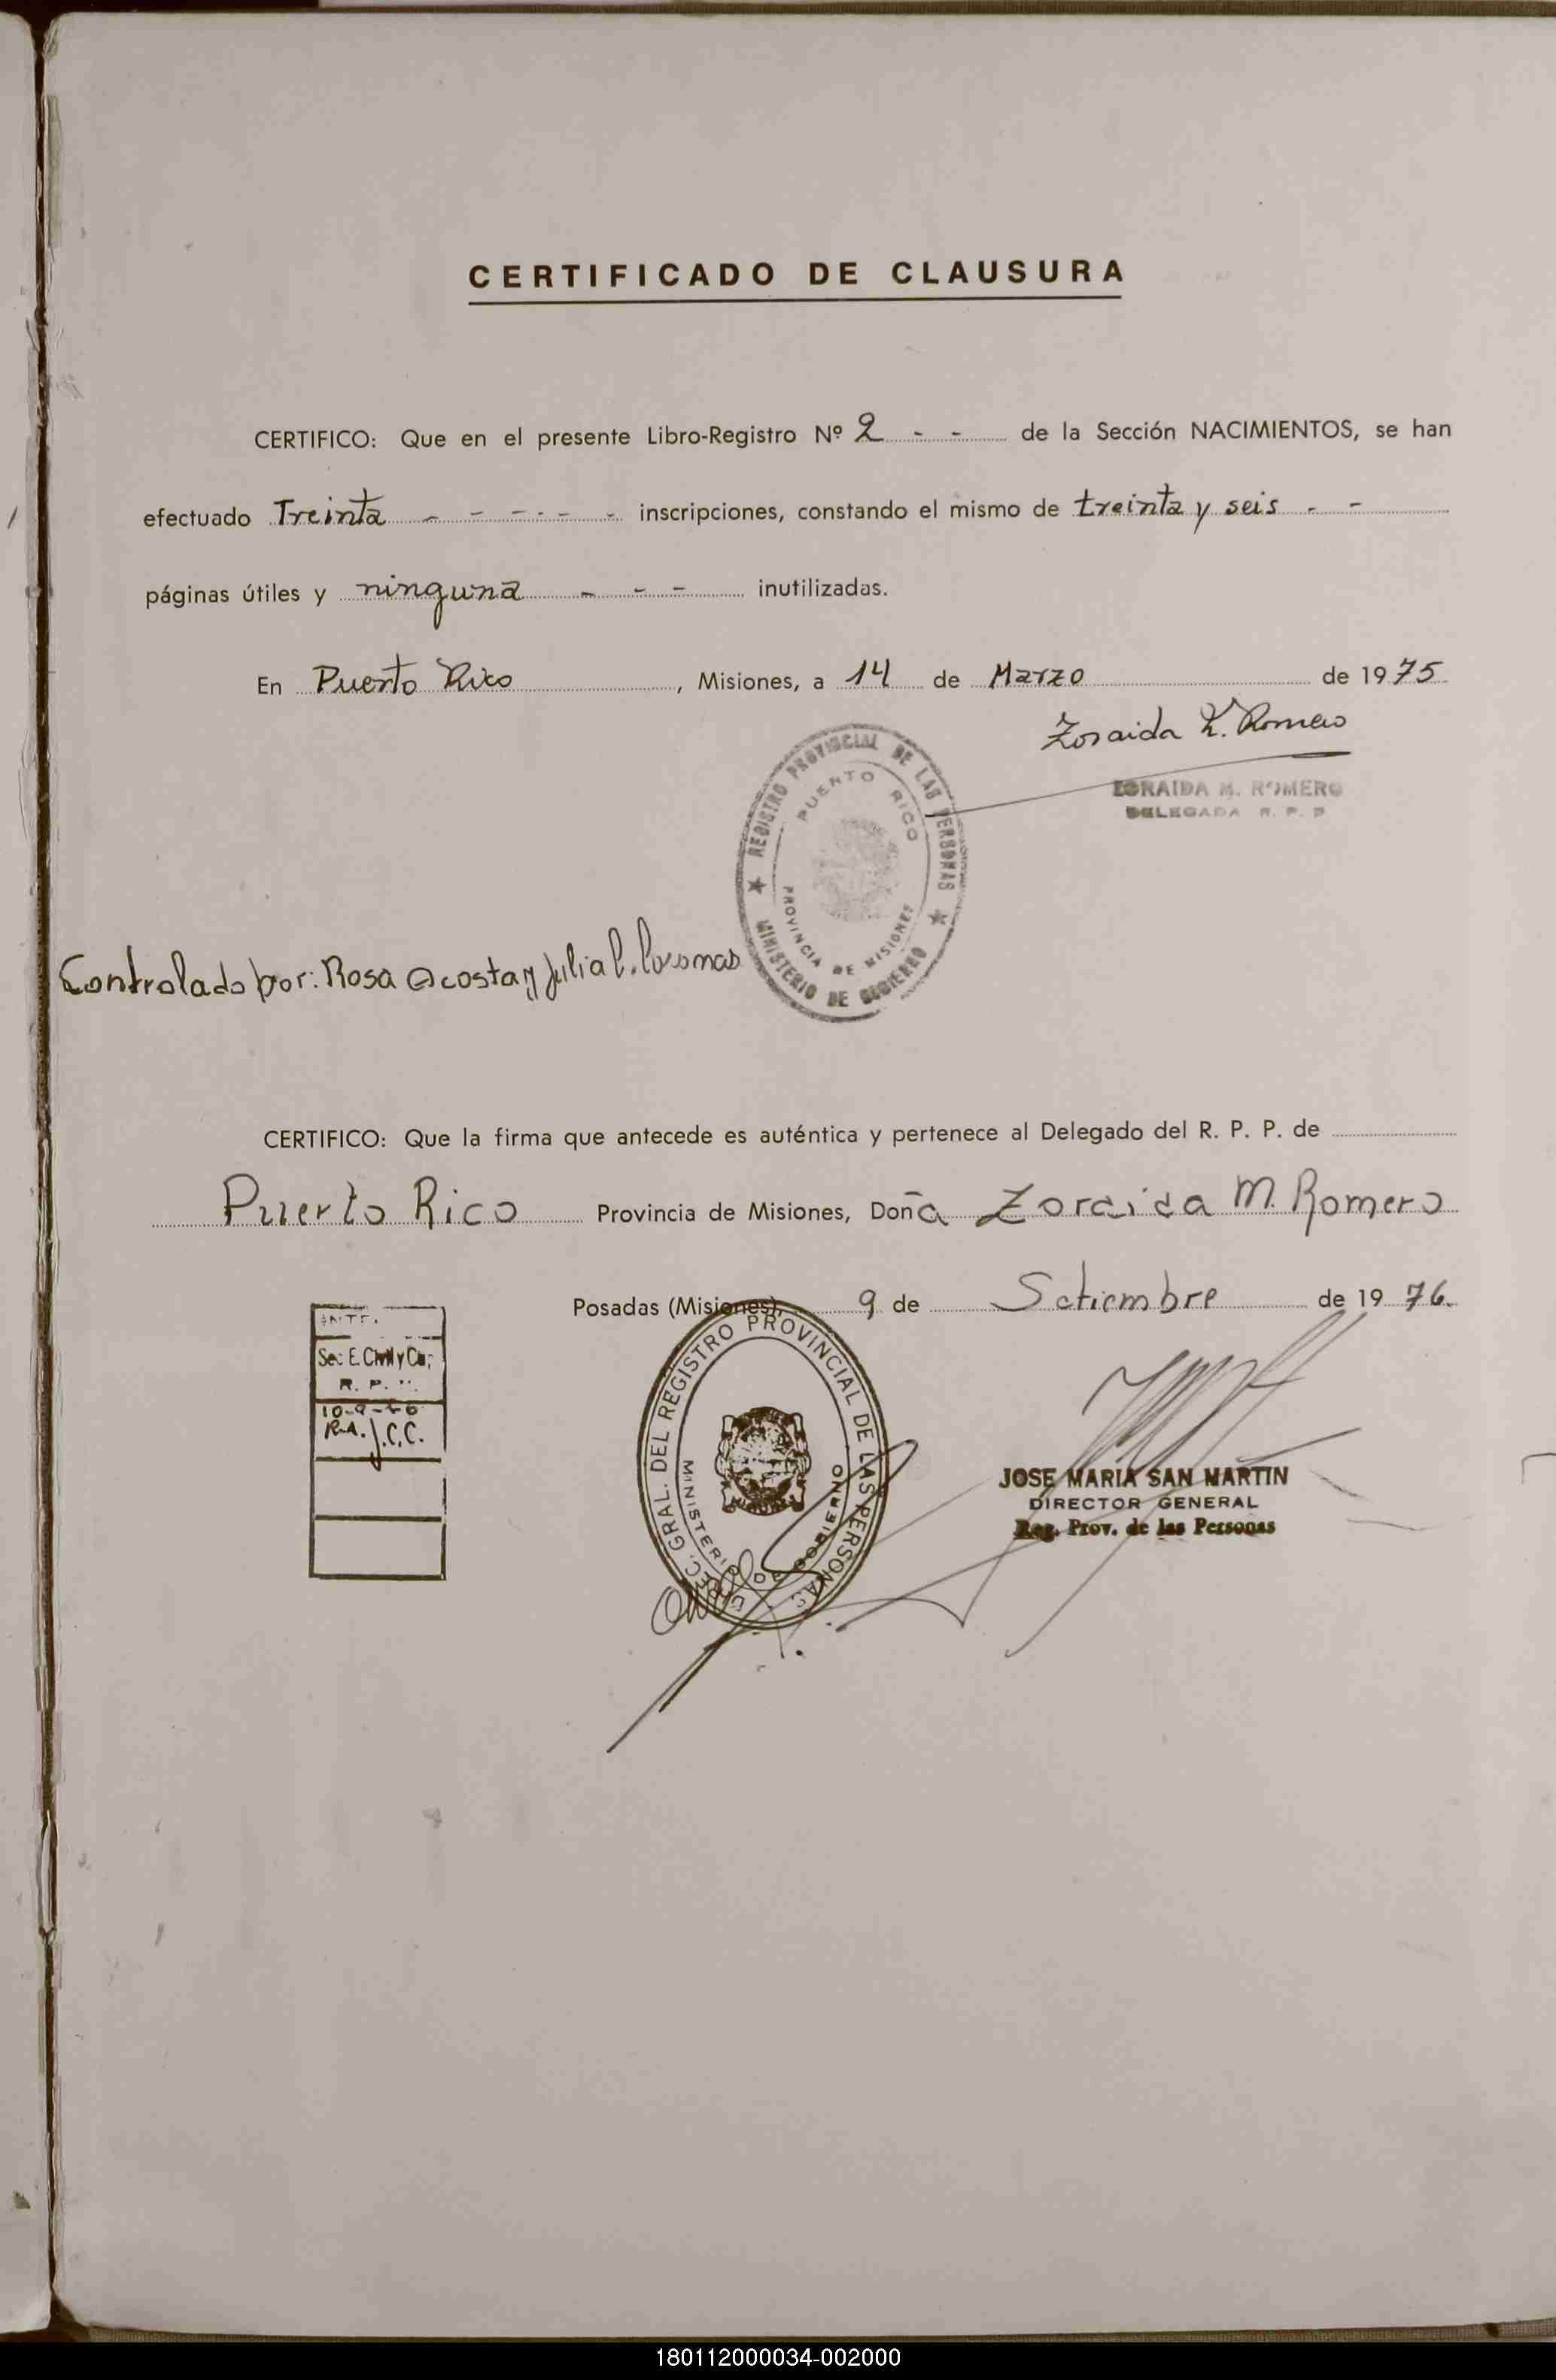 CERTIFICADO DE CLAUSURA
CERTIFICO: Que en el presente Libro-Registro Nº 2 - - de la Sección NACIMIENTOS, se han
efectuado Treinta - - - - - - inscripciones, constando el mismo de treinta y seis - -
páginas útiles y ninguna - - - inutilizadas.
En Puerto Rico, Misiones, a 14 de Marzo de 1975
Zoraida M. Romero
ZORAIDA M. ROMERO
DELEGADA R. P. P.
REGISTRO PROVINCIAL DE LAS PERSONAS
PUERTO RICO
PROVINCIA DE MISIONES
MINISTERIO DE GOBIERNO
Controlado por: Rosa Acosta y Julia C.
CERTIFICO: Que la firma que antecede es auténtica y pertenece al Delegado del R. P. P. de
Puerto Rico Provincia de Misiones, Doña Zoraida M. Romero
Posadas (Misiones), 9 de Setiembre de 1976.
Sec. E. Civil y Cap.
R. P. P.
R.A. J.C.C.
DIREC. GRAL. DEL REGISTRO PROVINCIAL DE LAS PERSONAS
MINISTERIO DE GOBIERNO
JOSE MARIA SAN MARTIN
DIRECTOR GENERAL
Reg. Prov. de las Personas
180112000034-002000